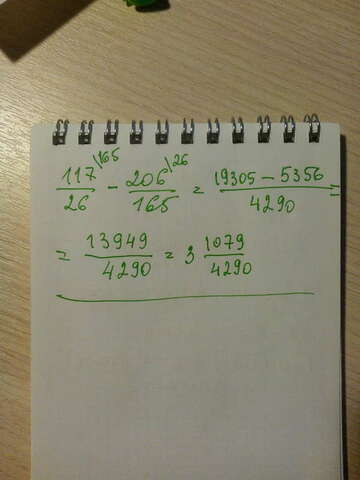 117\165/26 - 206\26/165 = 19305 - 5356/4290 =
= 13949/4290 = 3 1079/4290